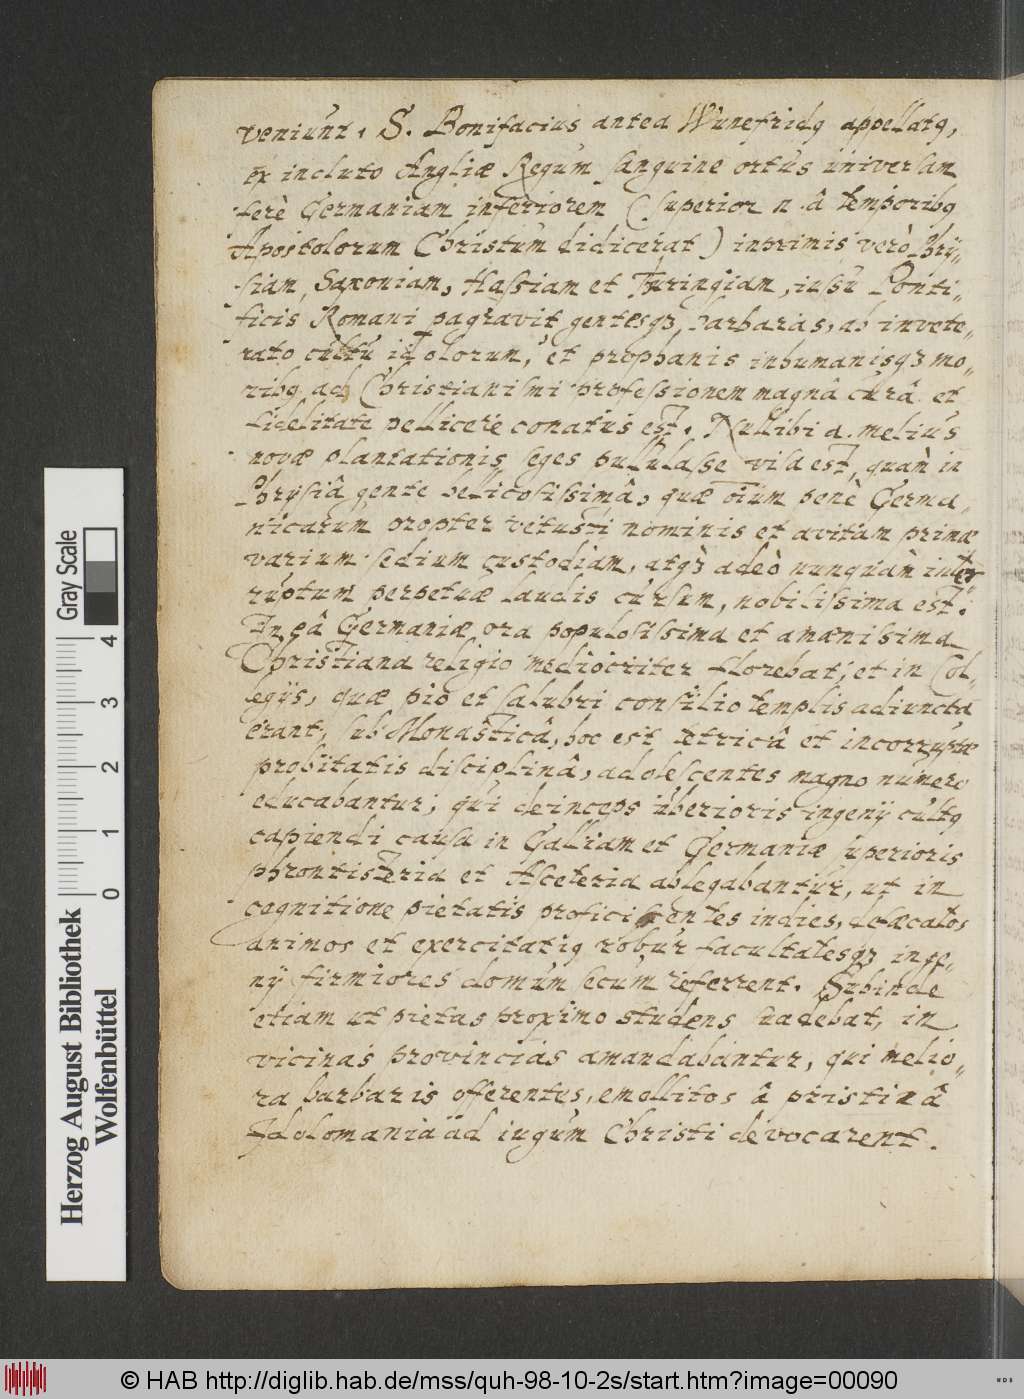 veniunt. S. Bonifacius antea Wunefridꝯ appellatꝯ,
ex incluto Angliæ Regum sanguine ortus universam
ferè Germaniam inferiorem (superior n. â temporibꝯ
Apostolorum Christum didicerat) inprimis verò Phry⸗
siam, Saxoniam, Hassiam et Turingiam, iussu Ponti⸗
ficis Romani pagravit gentesqꝫ barbaras, ab invete⸗
rato cultu idolorum, et prophanis inhumanisqꝫ mo⸗
ribꝯ ad Christianismi professionem magnâ curâ et
fidelitate pellicere conatus est. Nullibi a. melius
novæ plantationis seges pullulasse visa est, quàm in
Phrysiâ gente bellicosissimâ, quæ oīum penè Germa⸗
nicarum propter vetusti nominis et avitam primæ
varium sedium custodiam, atqꝫ adeò nunquàm inter
ruptum perpetuæ laudis cursum, nobilissima est.
In eâ Germaniæ ora populosissima et amænisima
Christiana religio mediocriter florebat; et in Col⸗
legijs, quæ pio et salubri consilio templis adiuncta
erant, sub Monasticâ, hoc est, tetricâ et incorruptæ
probitatis disciplinâ, adolescentes magno numero
educabantur; qui deinceps uberioris ingenij cultꝯ
capiendi causa in Galliam et Germaniæ superioris
phrontisteria et Asceteria ablegabantur, ut in
cognitione pietatis proficiscentes indies, defæcatos
animos et exercitatiꝯ robur facultatesqꝫ inge⸗
nij firmiores domum secum referrent. Subinde
etiam ut pietas proximo studens suadebat, in
vicinas provincias amandabantur, qui melio⸗
ra barbaris offerentes, emollitos â pristinâ
Idolomania ad iugum Christi devocarent.
Gray Scale
0 1 2 3 4
Herzog August Bibliothek
Wolfenbüttel
© HAB http://diglib.hab.de/mss/quh-98-10-2s/start.htm?image=00090